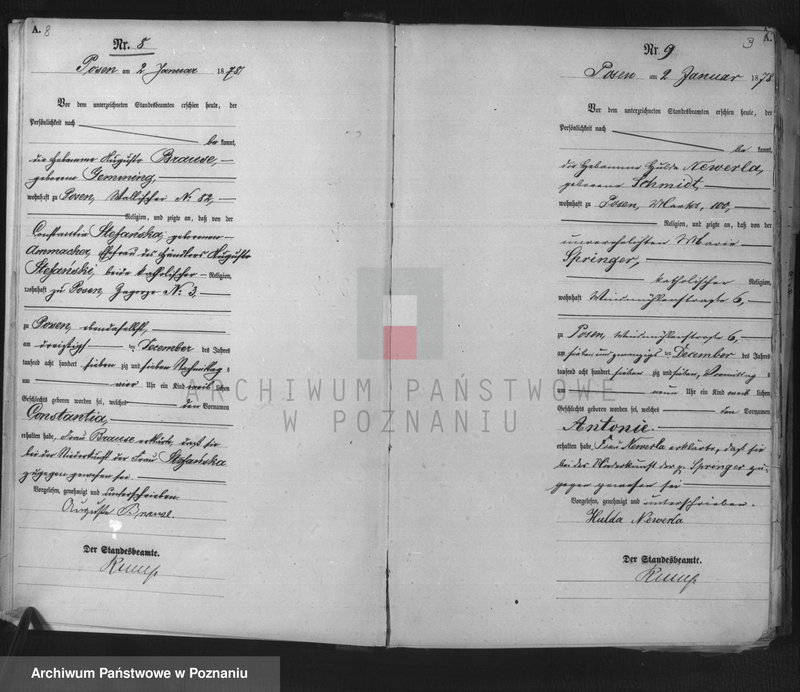 A. 8
Nr. 8
Posen am 2 Januar 1878
Vor dem unterzeichneten Standesbeamten erschien heute, der
Persönlichkeit nach
be kannt,
die Hebamme Auguste Brause,
geborene Gemming,
wohnhaft zu Posen, Wallischei No 52,
Religion, und zeigte an, daß von der
Constantia Stefańska, geborenen
Ammacher, Ehefrau des Händlers Auguste
Stefański, beide katholischer Religion,
wohnhaft zu Posen, Zagorze No 3,
zu Posen, ebendaselbst,
am dreizigst ten Dezember des Jahres
tausend acht hundert sieben zig und sieben Nachmittag s
um vier Uhr ein Kind weib lichen
Geschlechts geboren worden sei, welches den Vornamen
Constantia,
erhalten habe, Frau Brause erklärte, daß sie
bei der Niederkunft der Frau Stefańska
zugegen gewesen sei
Vorgelesen, genehmigt und unterschrieben
Auguste
Der Standesbeamte.
3
A.
Nr. 9
Posen am 2 Januar 1878
Vor dem unterzeichneten Standesbeamten erschien heute, der
Persönlichkeit nach
be kannt,
die Hebamme Hulda Newerla,
geborene Schmidt,
wohnhaft zu Posen, Markt, 100,
Religion, und zeigte an, daß von der
unverehelichten Marie
Springer,
katholischer Religion,
wohnhaft Windmühlenstraße 6,
zu Posen, Windmühlenstraße 6,
am sieben und zwanzigs ten Dezember des Jahres
tausend acht hundert sieben zig und sieben, Vormittag s
um neun Uhr ein Kind weib lichen
Geschlechts geboren worden sei, welches den Vornamen
Antonie.
erhalten habe, Frau Newerla erklärte, daß sie
bei der Niederkunft der p. Springer zu-
gegen gewesen sei
Vorgelesen, genehmigt und unterschrieben.
Hulda Newerla
Der Standesbeamte.
ARCHIWUM PAŃSTWOWE
W POZNANIU
Archiwum Państwowe w Poznaniu